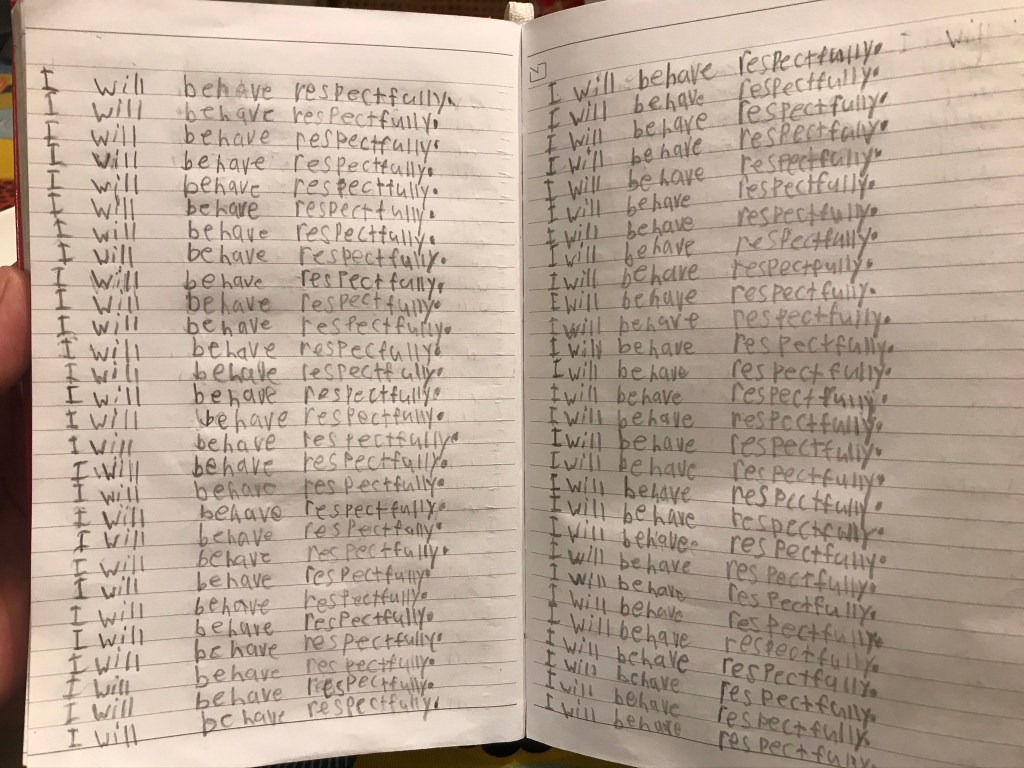 I will behave respectfully.
I will behave respectfully.
I will behave respectfully.
I will behave respectfully.
I will behave respectfully.
I will behave respectfully.
I will behave respectfully.
I will behave respectfully.
I will behave respectfully.
I will behave respectfully.
I will behave respectfully.
I will behave respectfully.
I will behave respectfully.
I will behave respectfully.
I will behave respectfully.
I will behave respectfully.
I will behave respectfully.
I will behave respectfully.
I will behave respectfully.
I will behave respectfully.
I will behave respectfully.
I will behave respectfully.
I will behave respectfully.
I will behave respectfully.
I will behave respectfully.
I will behave respectfully.
I will behave respectfully.
I will behave respectfully.
I will behave respectfully. I will
I will behave respectfully.
I will behave respectfully.
I will behave respectfully.
I will behave respectfully.
I will behave respectfully.
I will behave respectfully.
I will behave respectfully.
I will behave respectfully.
I will behave respectfully.
I will behave respectfully.
I will behave respectfully.
I will behave respectfully.
I will behave respectfully.
I will behave respectfully.
I will behave respectfully.
I will behave respectfully.
I will behave respectfully.
I will behave respectfully.
I will behave respectfully.
I will behave respectfully.
I will behave respectfully.
I will behave respectfully.
I will behave respectfully.
I will behave respectfully.
I will behave respectfully.
I will behave respectfully.
I will behave respectfully.